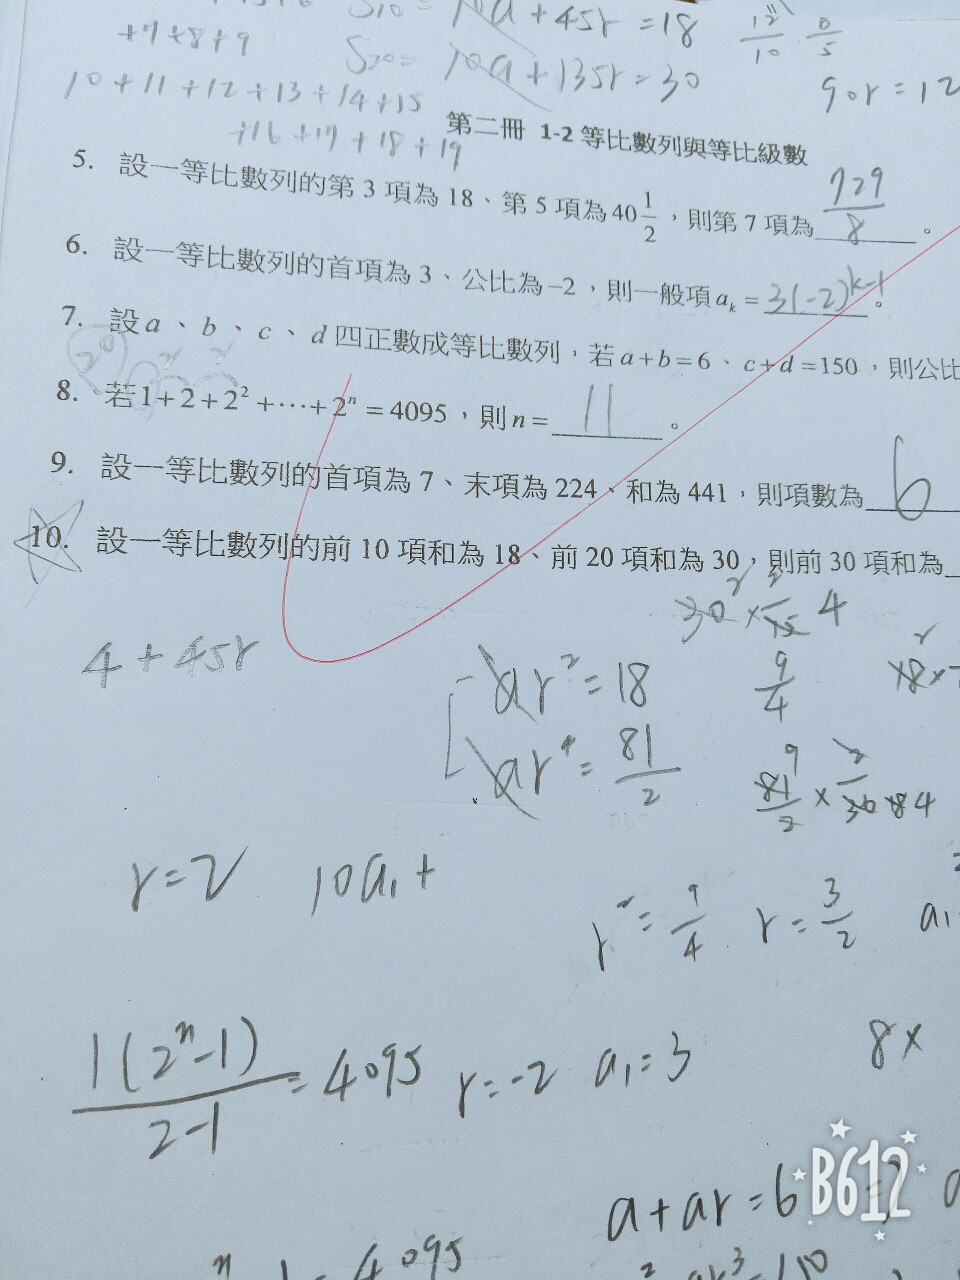 S10 = 10a + 45r = 18
+7 +8 +9
S20 = 10a + 135r = 30
90r = 12
10 + 11 + 12 + 13 + 14 + 15
+16 + 17 + 18 + 19
第二冊 1-2 等比數列與等比級數
5. 設一等比數列的第 3 項為 18、第 5 項為 40 1/2，則第 7 項為 729/8 。
6. 設一等比數列的首項為 3、公比為 –2，則一般項 aₖ = 3(-2)^k-1 。
7. 設 a、b、c、d 四正數成等比數列，若 a+b=6、c+d=150，則公比
8. 若 1+2+2²+⋯+2ⁿ = 4095，則 n = 11 。
9. 設一等比數列的首項為 7、末項為 224、和為 441，則項數為 6
10. 設一等比數列的前 10 項和為 18、前 20 項和為 30，則前 30 項和為
4 + 45r
ar² = 18
9/4
ar⁴ = 81/2
r = 2
10a₁ +
r² = 9/4
r = 3/2
a₁
1(2ⁿ-1)/2-1 = 4095
r = -2
a₁ = 3
8×
a + ar = 6
B612
4095